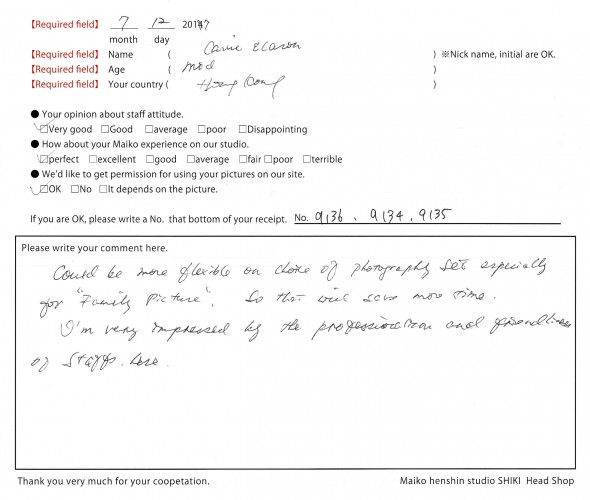 【Required field】 7 12 2017
month day
【Required field】 Name ( Carrie ) ※Nick name, initial are OK.
【Required field】 Age ( mid )
【Required field】 Your country ( Hong Kong )
● Your opinion about staff attitude.
☑Very good □Good □average □poor □Disappointing
● How about your Maiko experience on our studio.
☑perfect □excellent □good □average □fair □poor □terrible
● We'd like to get permission for using your pictures on our site.
☑OK □No □It depends on the picture.
If you are OK, please write a No. that bottom of your receipt. No. 9136 , 9134 , 9135
Please write your comment here.
Could be more flexible on choice of photography set especially
for "Family Picture". So that will save more time.
I'm very impressed by the professionalism and friendliness
of staffs here.
Thank you very much for your coopetation. Maiko henshin studio SHIKI Head Shop